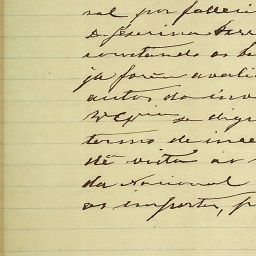 sal por falleci
D. Jesuina
constando os be
ja forão avali
autos do inv
V Exª se dign
termo de inve
dê vista ao
da Nacional
os importa, p